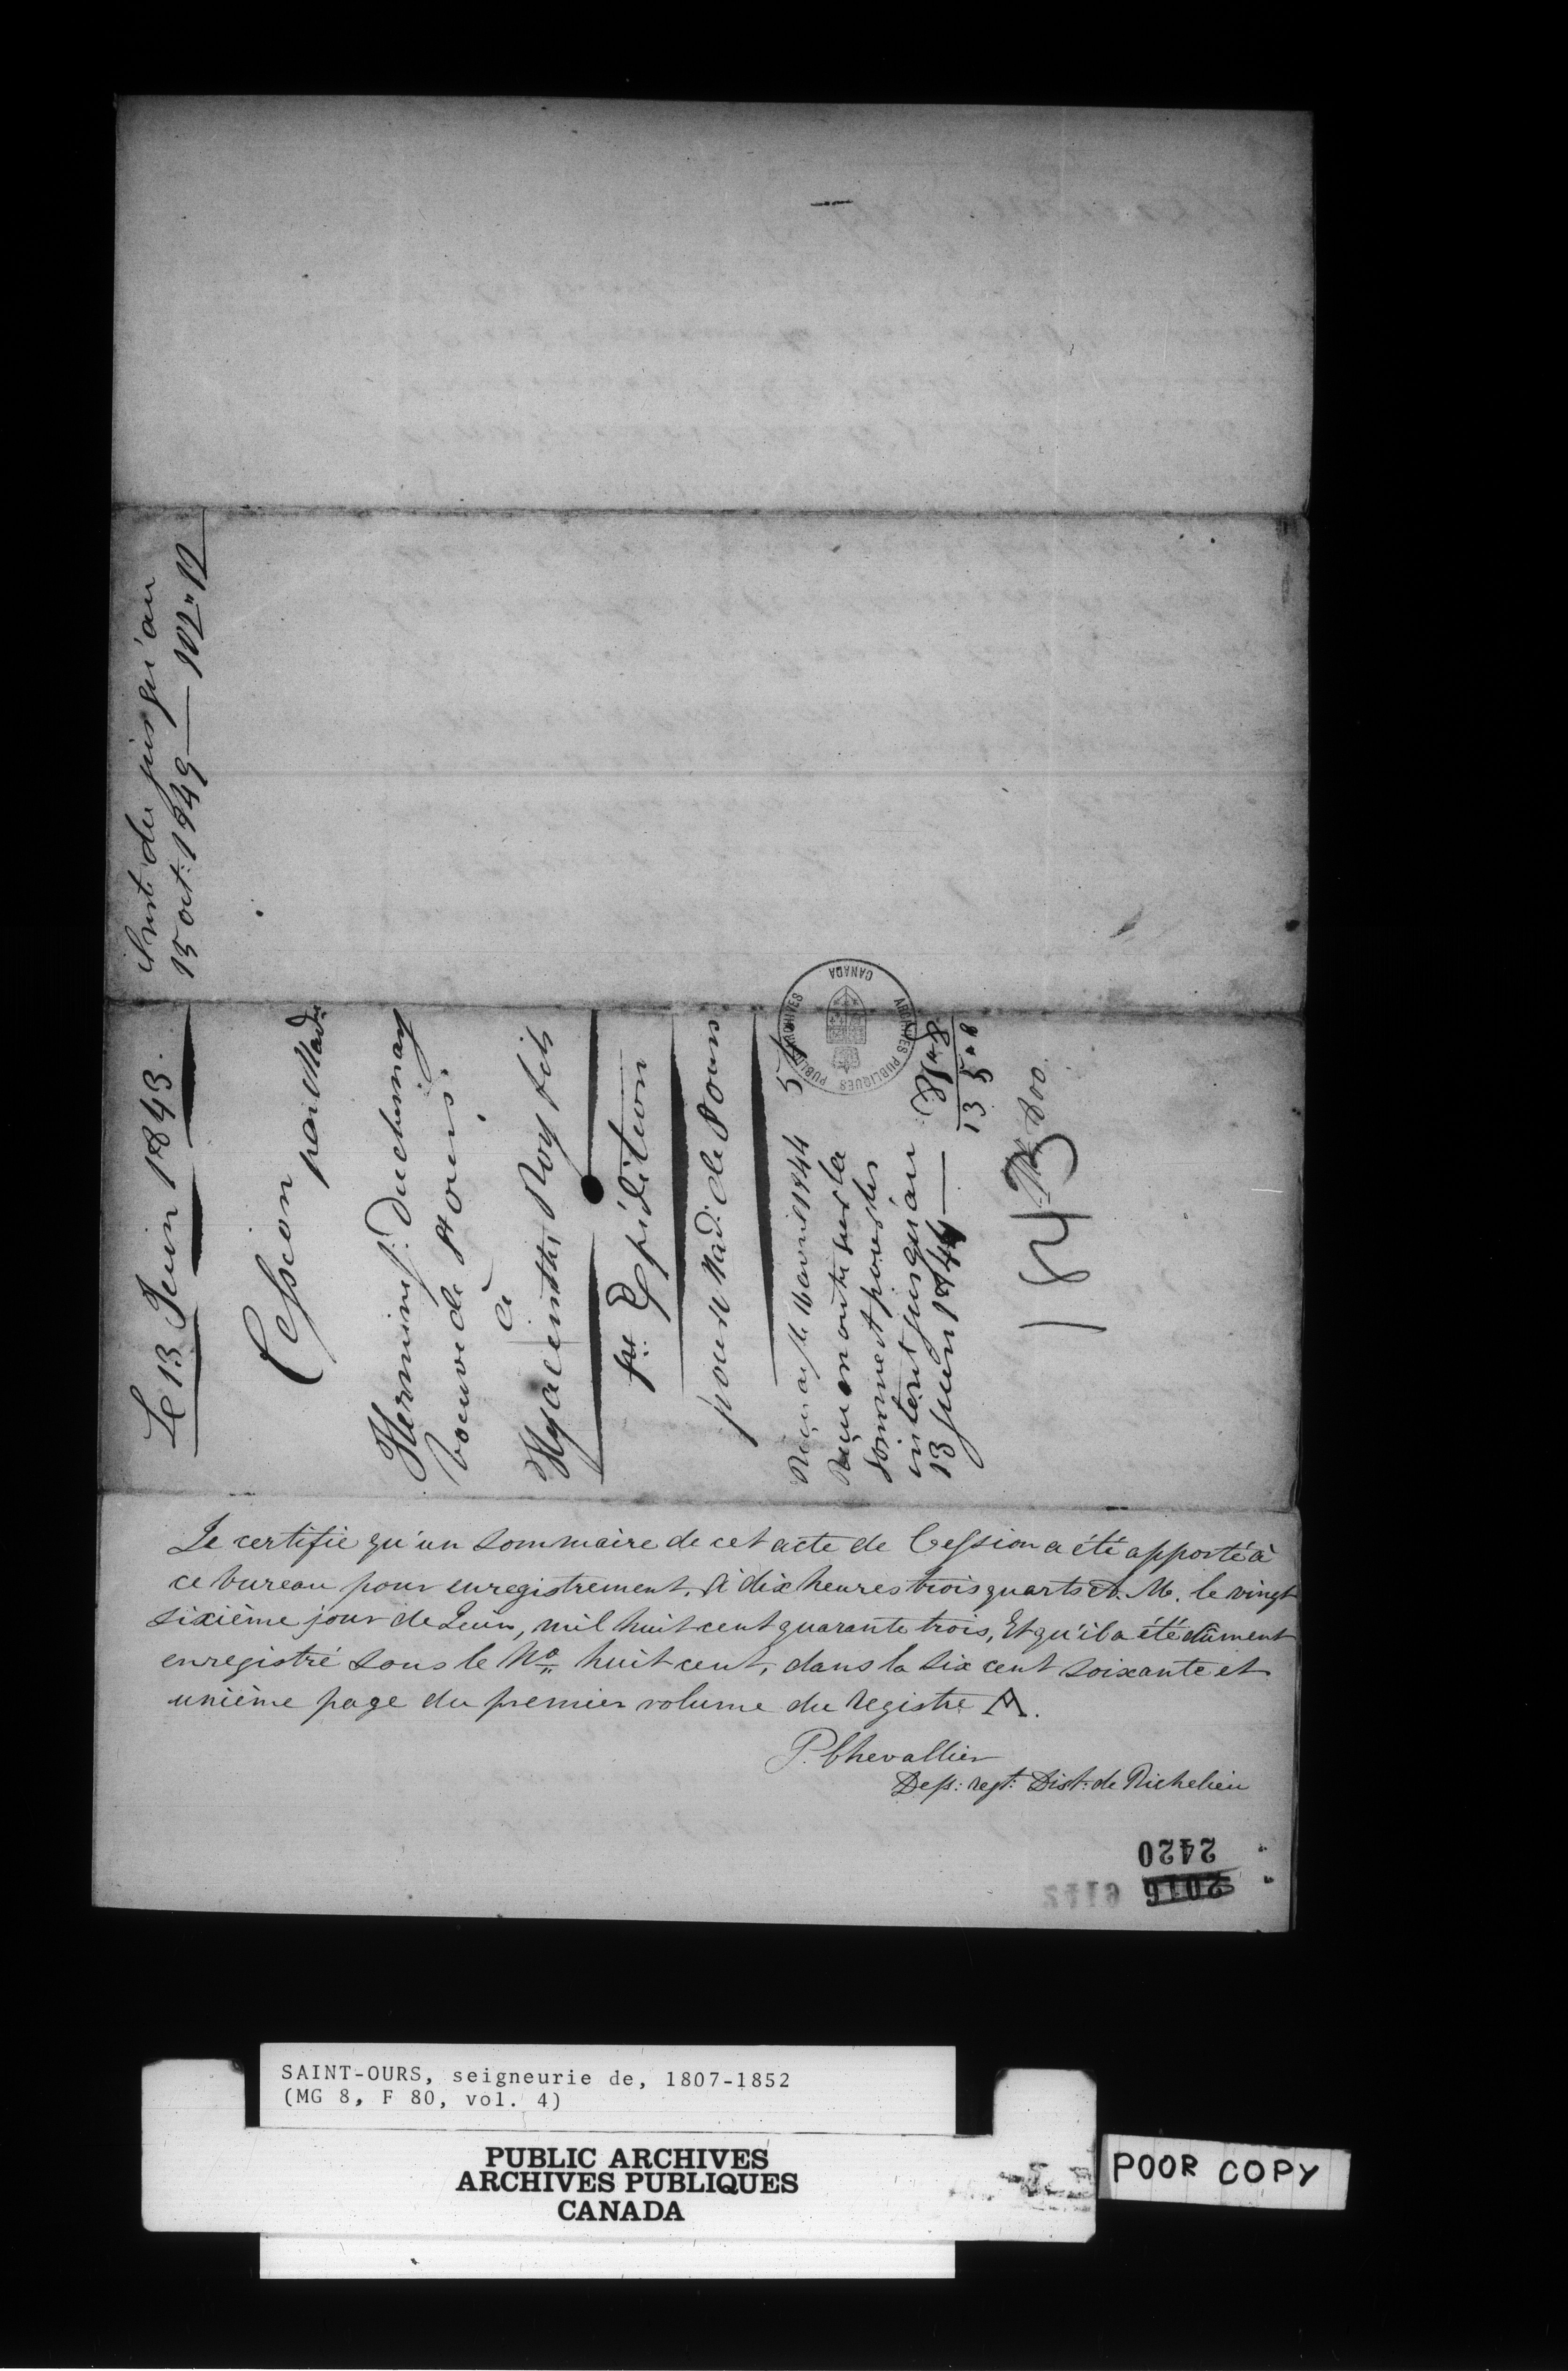 Intt. du jusqu'au
15 oct: 1849 — 102" 12
Le 13 Juin 1843.
Cession
par Made
Hermine J. Duchesnay
Veuve de St Ours.
à
Hyacinthe Roy fils
pre. Expédition
pour Mad: de St Ours
Reçu à cte 16 avril 1844 5
Reçu en outre sur la
somme et pour les
intérêt jusqu'au
13 juin 1844 —
13 5 " 0
No. 800.
184
Je certifie qu'un sommaire de cet acte de Cession a été apporté à
ce bureau pour enregistrement, à dix heures trois quarts A. M. le vingt
sixième jour de Juin, mil huit cent quarante trois, Et qu'il a été dûment
enregistré sous le No. huit cent, dans la six cent soixante et
unième page du premier volume du Registre A.
P. Chevallier
Dep: regt: Dist: de Richelieu
2420
2016 6112
PUBLIC ARCHIVES
ARCHIVES PUBLIQUES
CANADA
SAINT-OURS, seigneurie de, 1807-1852
(MG 8, F 80, vol. 4)
PUBLIC ARCHIVES
ARCHIVES PUBLIQUES
CANADA
POOR COPY